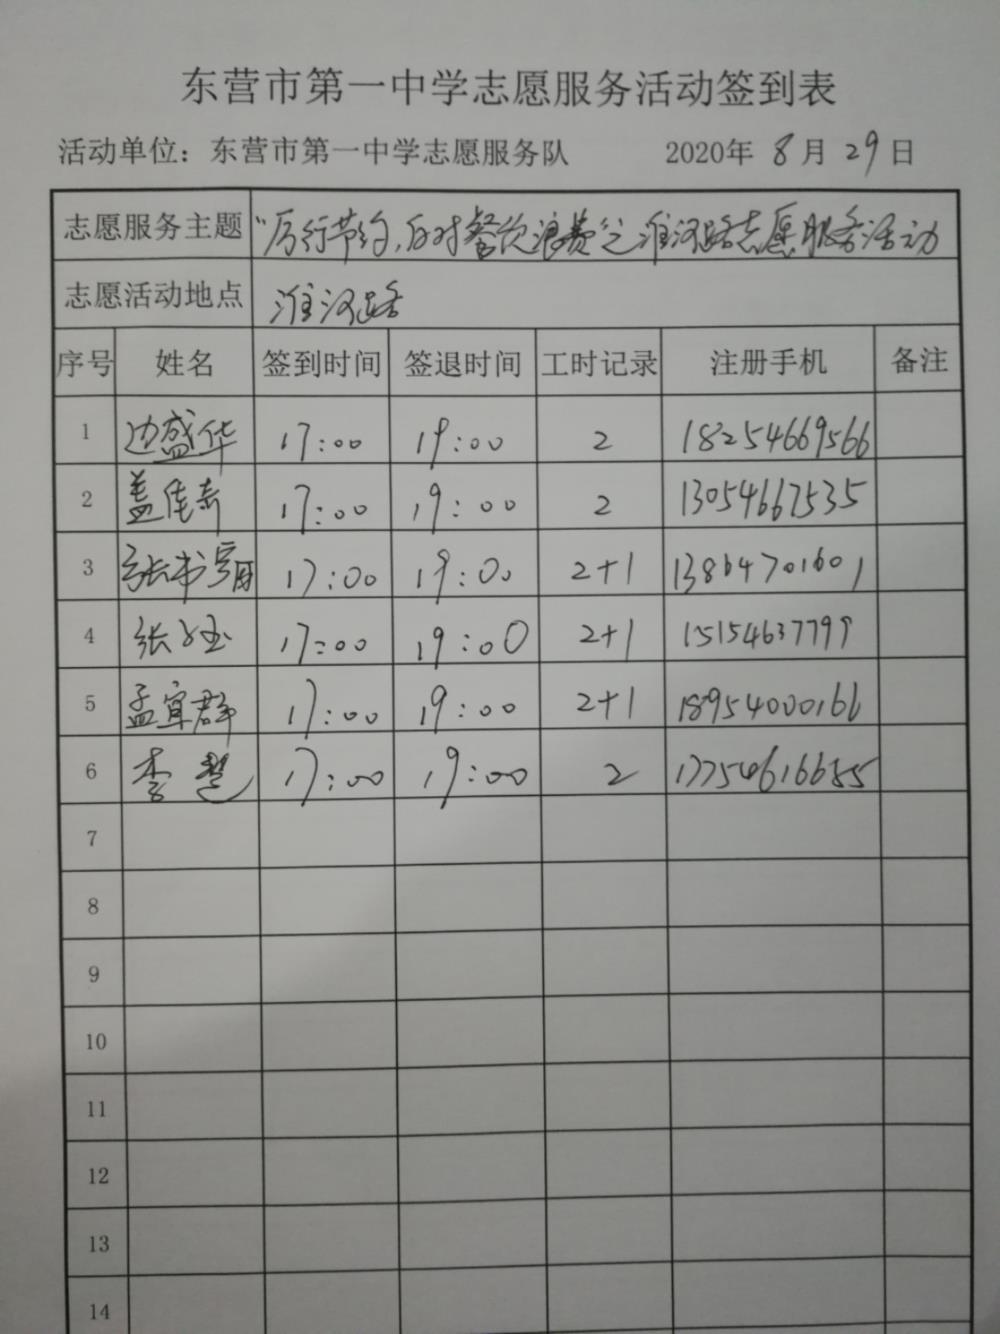 东营市第一中学志愿服务活动签到表
活动单位：东营市第一中学志愿服务队 2020年 8月 29日
志愿服务主题 "厉行节约,反对餐饮浪费"之淮河路志愿服务活动
志愿活动地点 淮河路
序号 姓名 签到时间 签退时间 工时记录 注册手机 备注
1 边盛华 17:00 19:00 2 18254669566
2 盖佳 17:00 19:00 2 13054667535
3 张书 17:00 19:00 2+1 13864701601
4 张玉 17:00 19:00 2+1 15154637799
5 孟宜群 17:00 19:00 2+1 18954000166
6 李慧 17:00 19:00 2 17754616655
7
8
9
10
11
12
13
14